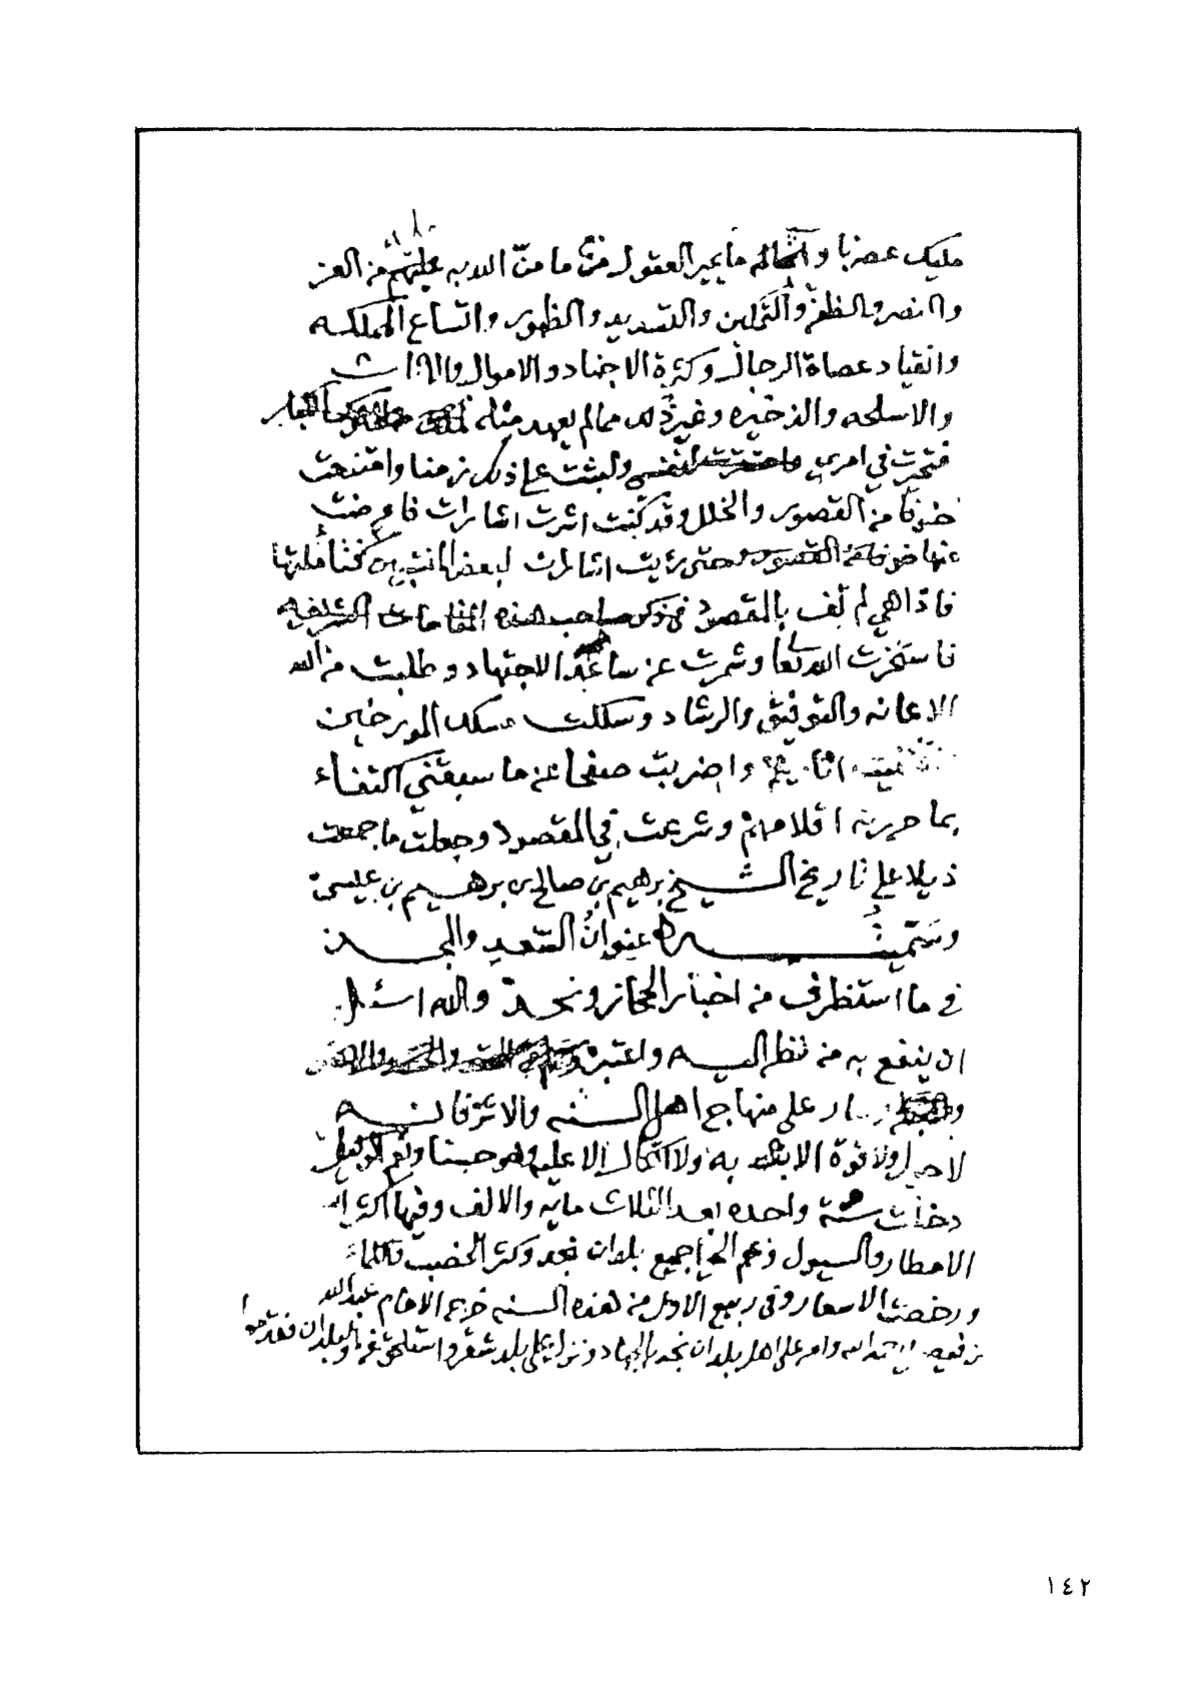 مليك عصرنا و ما يحير العقول من ما منّ الله به عليهم من العز
والنصر والظفر والتمكين والتسديد والظهور واتساع المملكه
وانقياد عصاة الرجال وكثرة الاجناد والاموال والاثاث
والاسلحه والذخيره وغير ذلك مما لم يعهد مثله
فتحيرت في امري ولبثت على ذلك زمنا وامتنعت
خوفا من القصور والخلل وقد كنت اشرت اشارات فاعرضت
عنها حتى رئيت اشارات لبعض
فاذا هي لم تف بالمقصود في ذكر صاحب هذه المقامات الشريفه
فاستخرت الله تعا وشمرت عن ساعد الاجتهاد وطلبت من الله
الاعانه والتوفيق والرشاد وسلكت مسلك المورخين
واضربت صفحا عن ما سبقني اكتفاء
بما حررته اقلامهم وشرعت في المقصود وجعلت ما جمعت
ذيلا على تاريخ الشيخ برهيم بن صالح بن برهيم بن عيسى
وسَمّيتُه عنوانُ السّعدِ والمجد
في ما استظرف من اخبار الحجاز ونجد والله اسئل
ان ينفع به من نظر اليه واعتبر
على منهاج اهل السنه والا
لا حول ولا قوة الا به ولا اتكال الا عليه وهو حسبنا ونعم الوكيل
دخلت سنة واحده بعد الثلاث مايه والالف وفيها كثرت
الامطار والسيول وعم الحيا جميع بلدان نجد وكثر الخصب والكلاء
ورخصت الاسعار وفي ربيع الاول من هذه السنه خرج الامام عبدالله
بن فيصل وامر على اهل بلدان نجد بالجهاد ونزل على بلد شقرا واستلحق غزو البلدان فقدموا
١٤٢